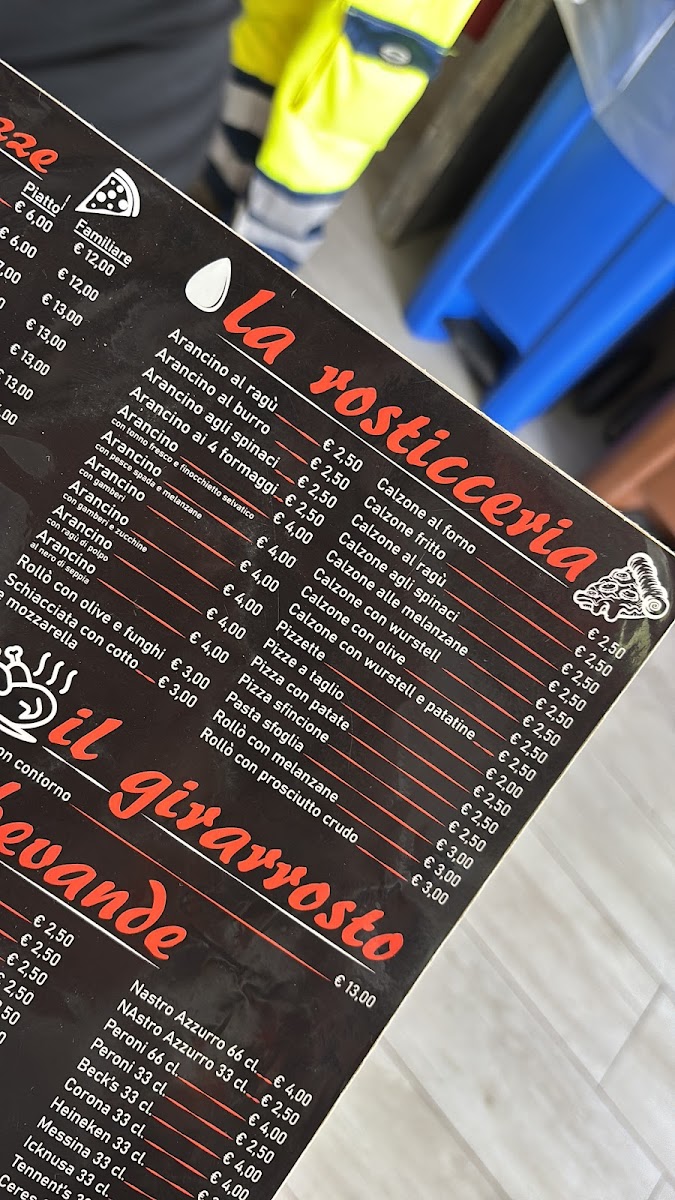 zze
Piatto Familiare
€ 6,00 € 12,00
€ 6,00 € 12,00
7,00 € 13,00
€ 13,00
€ 13,00
€ 13,00
La rosticceria
Arancino al ragù € 2,50
Arancino al burro € 2,50
Arancino agli spinaci € 2,50
Arancino ai 4 formaggi € 2,50
Arancino € 4,00
con tonno fresco e finocchietto selvatico
Arancino € 4,00
con pesce spada e melanzane
Arancino € 4,00
con gamberi
Arancino € 4,00
con gamberi e zucchine
Arancino € 4,00
con ragù di polpo
Arancino € 4,00
al nero di seppia
Rollò con olive e funghi € 3,00
Schiacciata con cotto € 3,00
e mozzarella
Calzone al forno € 2,50
Calzone fritto € 2,50
Calzone al ragù € 2,50
Calzone agli spinaci € 2,50
Calzone alle melanzane € 2,50
Calzone con wurstell € 2,50
Calzone con olive € 2,50
Calzone con wurstell e patatine € 2,50
Pizzette € 2,00
Pizze a taglio € 2,50
Pizza con patate € 2,50
Pizza sfincione € 2,50
Pasta sfoglia € 3,00
Rollò con melanzane € 3,00
Rollò con prosciutto crudo € 3,00
il girarrosto
on contorno € 13,00
bevande
€ 2,50
€ 2,50
€ 2,50
€ 2,50
Nastro Azzurro 66 cl. € 4,00
NAstro Azzurro 33 cl. € 2,50
Peroni 66 cl. € 4,00
Peroni 33 cl. € 2,50
Beck's 33 cl. € 4,00
Corona 33 cl. € 4,00
Heineken 33 cl.
Messina 33 cl.
Icknusa 33 cl.
Tennent's 33
Ceres